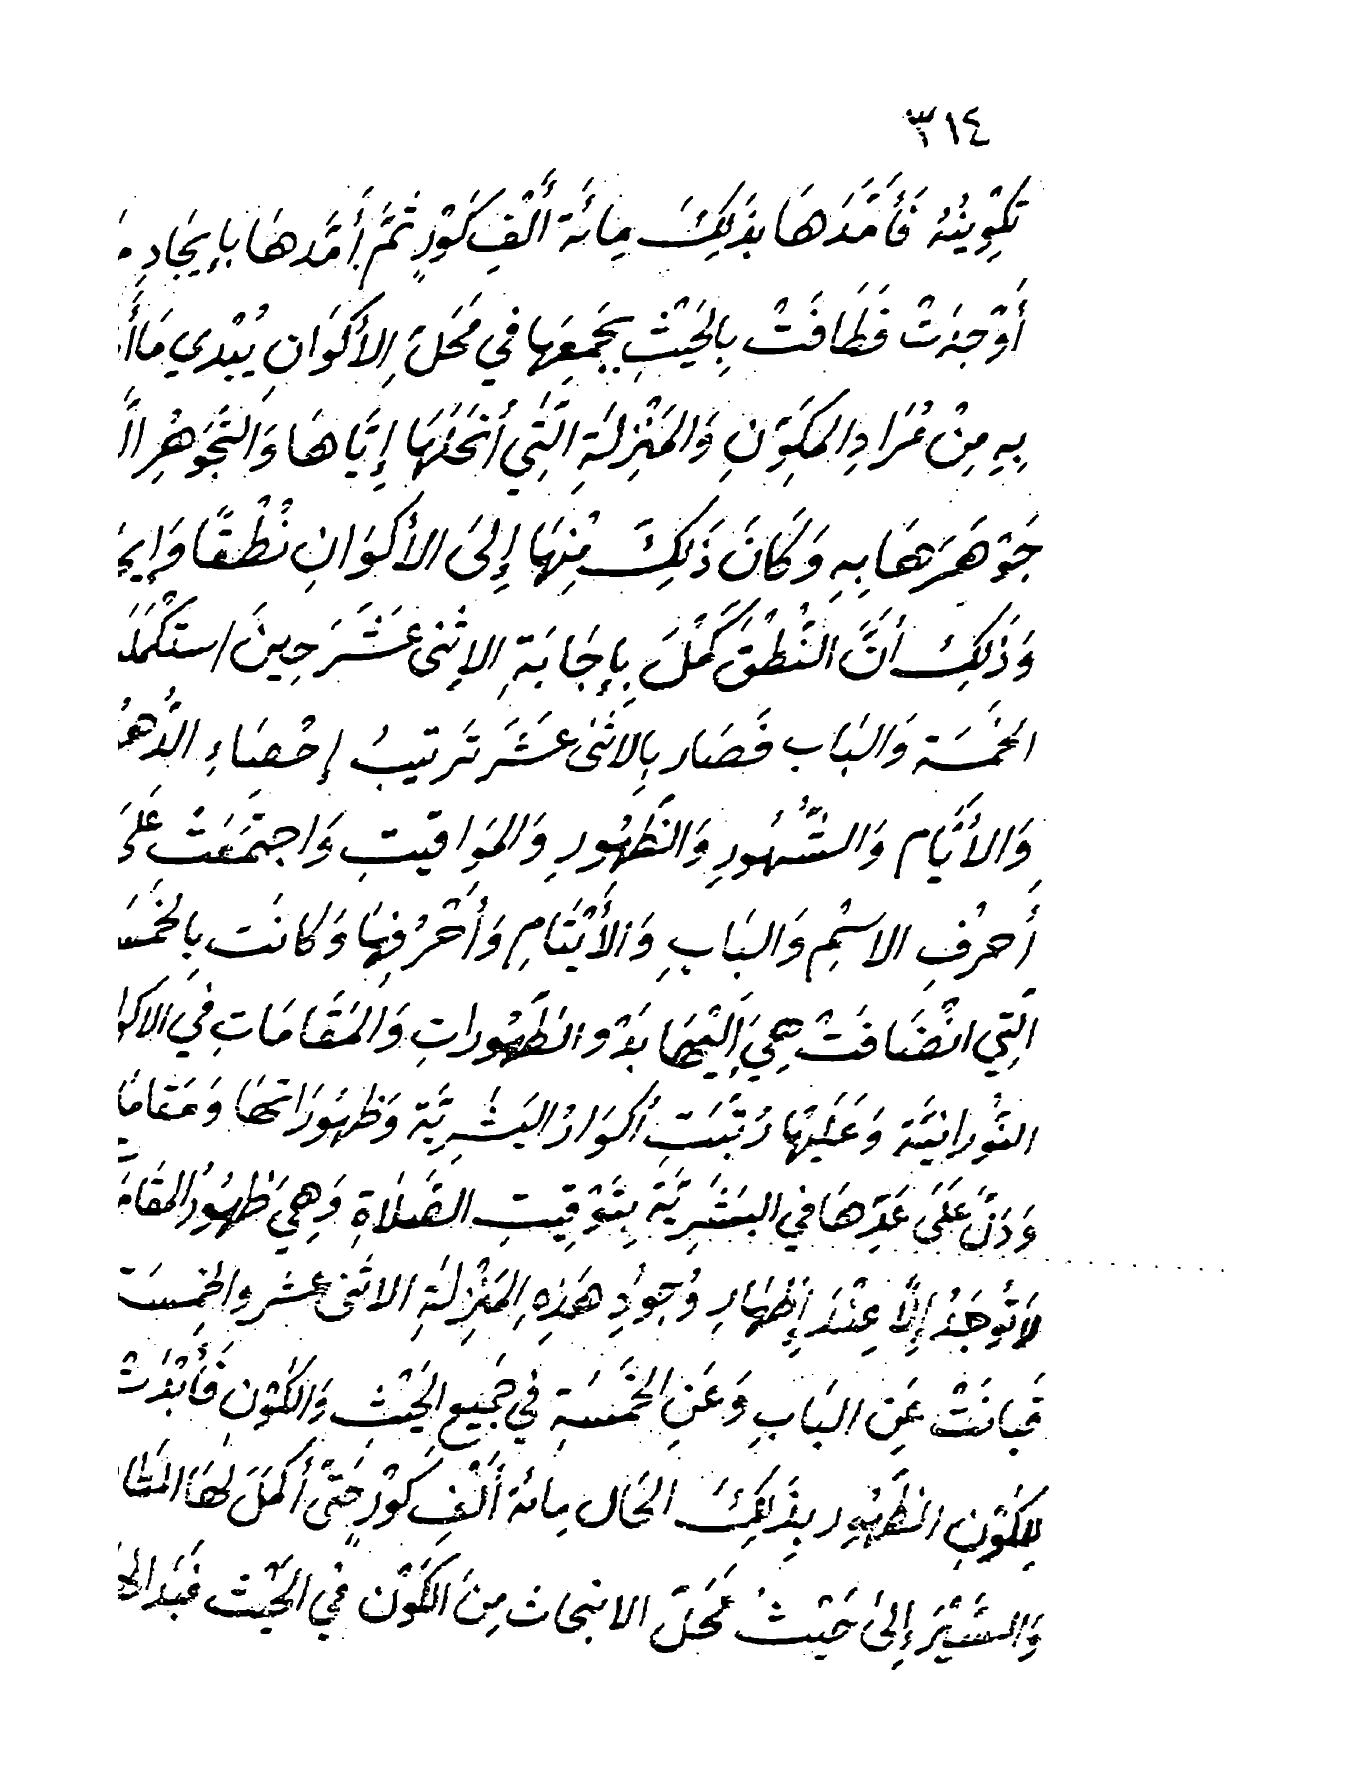 ٣١٤
تَكْوِينُهُ فَأَمَدَّهَا بِذَلِكَ مِائَة أَلْفِ كَوْرٍ ثُمَّ أَمَدَّهَا بِإِيجَادِ
أَوْجَدَتْ فَطَافَتْ بِالحَيْثِ بِجَمْعِهَا فِي مَحَلِّ الأَكْوَانِ يُبْدِي مَا
بِهِ مِنْ مُرَادِ المُكَوِّنِ وَالمَنْزِلَةِ الَّتِي أَنْحَلَهَا إِيَّاهَا وَالتَّجَوْهُرِ
جَوْهَرَهَا بِهِ وَكَانَ ذَلِكَ مِنْهَا إِلَى الأَكْوَانِ نُطْقًا
وَذَلِكَ أَنَّ النُّطْقَ كَمُلَ بِإِجَابَةِ الإِثْنَى عَشَرَ حِينَ استَكْمَلَ
الخَمْسَة وَالبَاب فَصَار بِالاثْنَى عَشَرَ تَرتيبُ إِحْصَاءِ
وَالأَيَّام وَالشُّهُورِ وَالظُّهُورِ وَالمَوَاقيتِ وَاجتَمَعَتْ عَلَى
أَحرُفِ الاسْمِ وَالبَابِ وَالأَيْتَامِ وَأَحْرُفِهَا وَكَانَت
الَّتِي انْضَافَتْ هِيَ إِلَيْهَا بَدْو الظُّهُورَاتِ وَالمَقَامَاتِ فِي
النُّورانِيَّة وَعَلَيْهَا رُتِّبَتِ أَكْوَارُ البَشَرِيَّة وَظُهُورَاتِهَا
وَدَلَّ عَلَى عَدِّهَا فِي البَشَرِيَّة بِتَوْقِيتِ الصَّلَاةِ وَهِيَ ظُهُورُ
لَا تُوجَدُ إِلَّا عِنْدَ إِظْهَارِ وُجُودِ هَذِهِ المَنْزِلَةِ الاثْنَى عَشر والخمسَة
فَبَانَتْ عَنِ البَابِ وَعَنِ الخَمْسَةِ فِي جَمِيعِ الحَيْثِ وَالكَوْنِ فَأَبْدَتْ
لِلْكَوْنِ الظُّهُورِ بِذَلِكَ الحَال مِائة أَلْفِ كَوْرٍ حَتَّى أَكْمَلَ لَهَا
وَالسَّيْرَ إِلَى حَيْثُ مَحَلّ الانبحاث مِنَ الكَوْنِ فِي الحَيْثِ